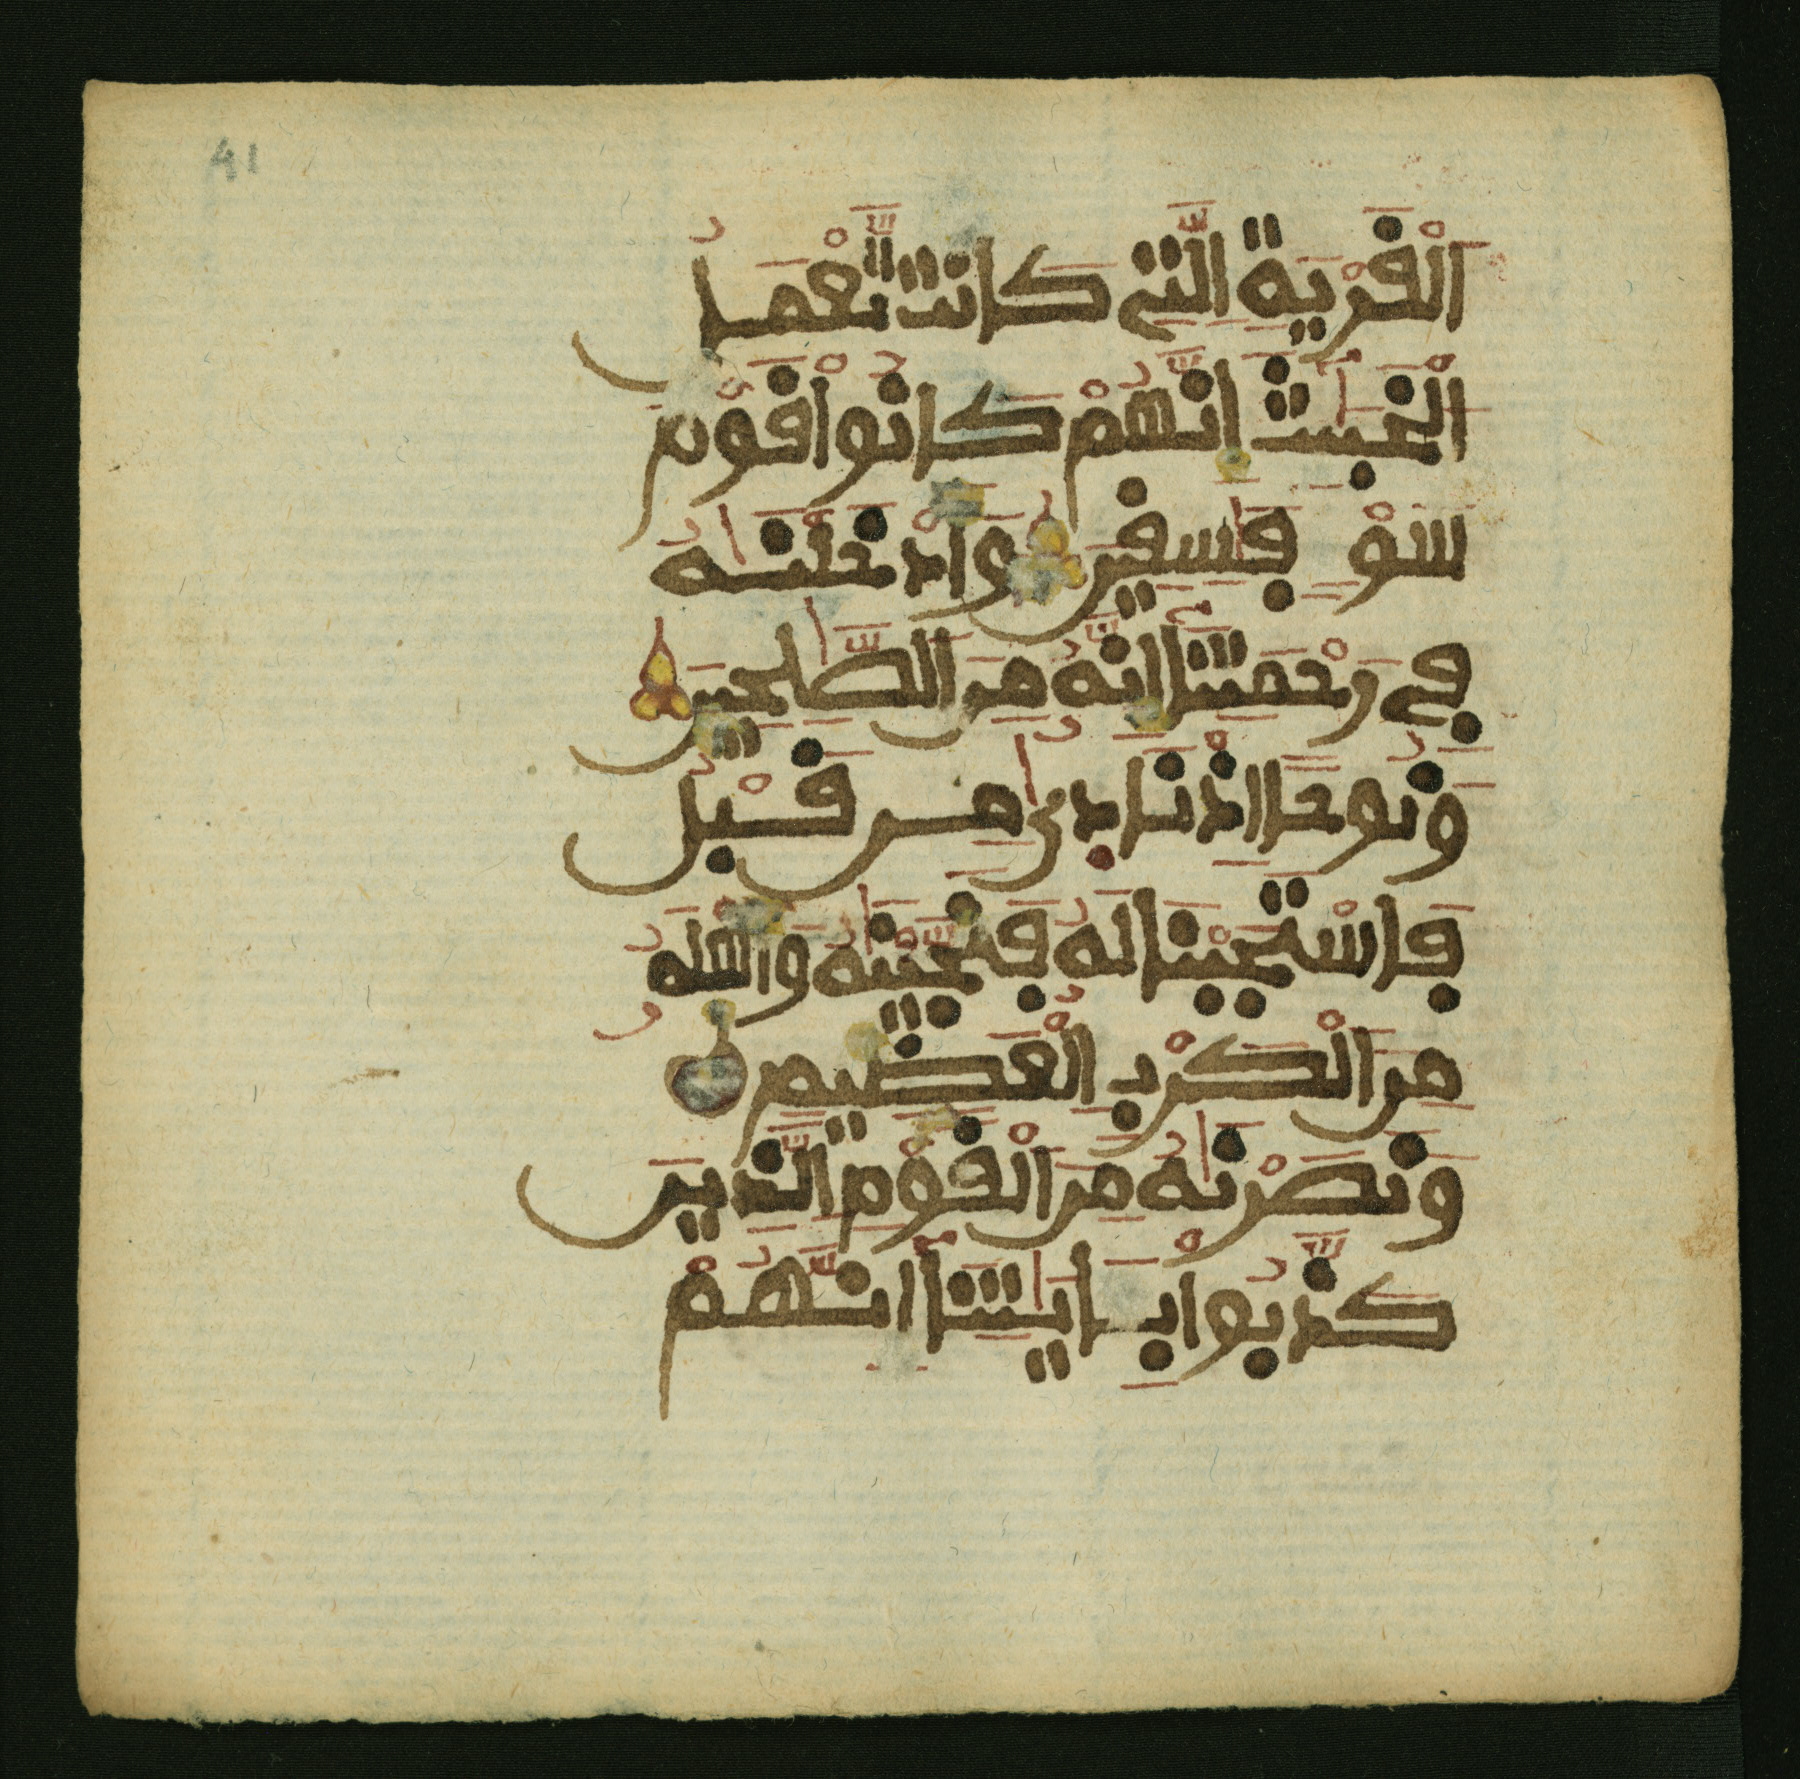 41
اَ۬لْقَرْيَةِ اِ۬لتِّے كَانَت تَّعْمَلُ
اُ۬لْخَبَٰٓئِثَ إِنَّهُمْ كَانُواْ قَوْمَ
سَوْءٖ فَٰسِقِينَ وَأَدْخَلْنَٰهُ
فِے رَحْمَتِنَآ إِنَّهُۥ مِنَ اَ۬لصَّٰلِحِينَ
وَنُوحاً اِذْ نَادَيٰ مِن قَبْلُ
فَاسْتَجَبْنَا لَهُۥ فَنَجَّيْنَٰهُ وَأَهْلَهُۥ
مِنَ اَ۬لْكَرْبِ اِ۬لْعَظِيمِ
وَنَصَرْنَٰهُ مِنَ اَ۬لْقَوْمِ اِ۬لذِينَ
كَذَّبُواْ بِـَٔايَٰتِنَآ إِنَّهُمْ